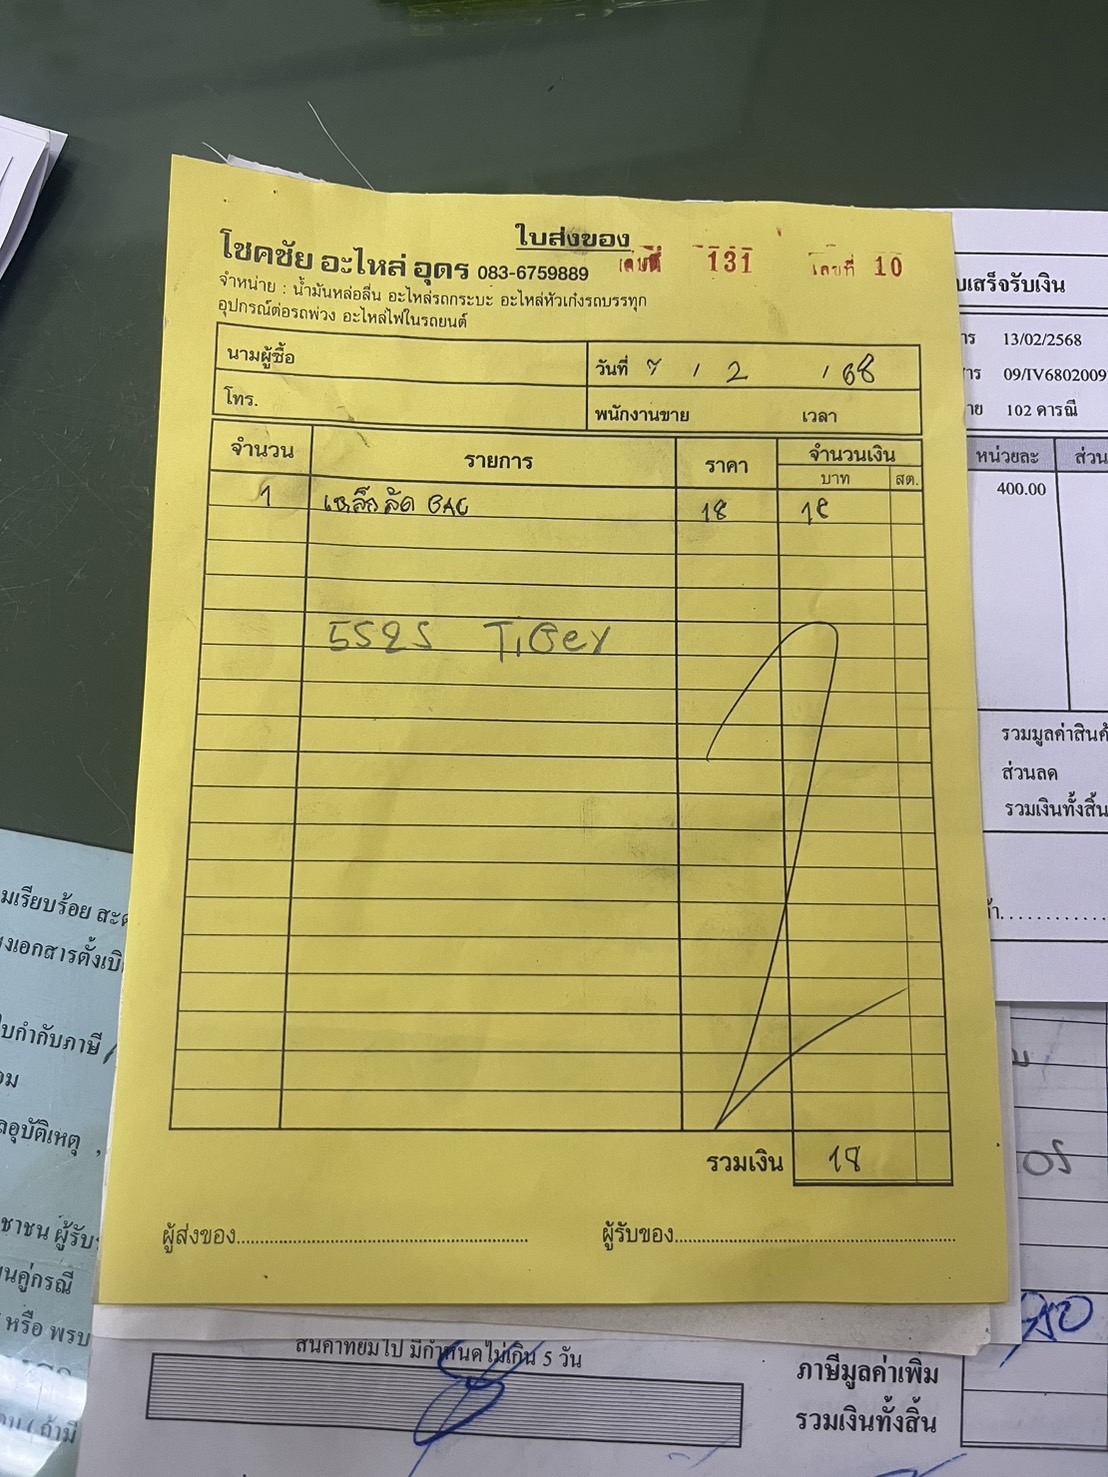 ใบส่งของ
โชคชัย อะไหล่ อุดร 083-6759889
เล่มที่ 131 เลขที่ 10
จำหน่าย : น้ำมันหล่อลื่น อะไหล่รถกระบะ อะไหล่หัวเก๋งรถบรรทุก
อุปกรณ์ต่อรถพ่วง อะไหล่ไฟในรถยนต์
นามผู้ซื้อ
วันที่ 7 / 2 / 68
โทร.
พนักงานขาย เวลา
จำนวน รายการ ราคา จำนวนเงิน
บาท สต.
1 เหล็กลัด 18 18
5525 TiGer
รวมเงิน 18
ผู้ส่งของ ผู้รับของ
บเสร็จรับเงิน
13/02/2568
09/IV6802009
102 คารณี
หน่วยละ ส่วน
400.00
รวมมูลค่าสินค้
ส่วนลด
รวมเงินทั้งสิ้น
มเรียบร้อย
งเอกสารตั้งเบิ
บกำกับภาษี
ลอุบัติเหตุ ,
ชาชน ผู้รับ
นคู่กรณี
หรือ พรบ
ถ้ามี
มีกำหนดไม่เกิน 5 วัน
ภาษีมูลค่าเพิ่ม
รวมเงินทั้งสิ้น